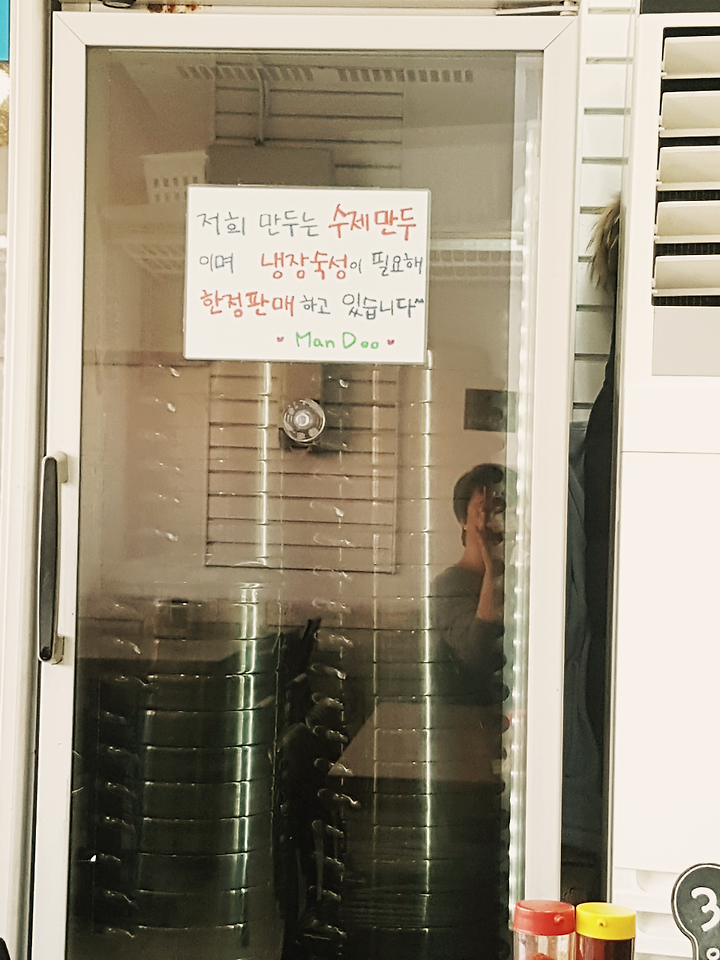 저희 만두는 수제만두
이며 냉장숙성이 필요해
한정판매하고 있습니다^^
Man Doo
3